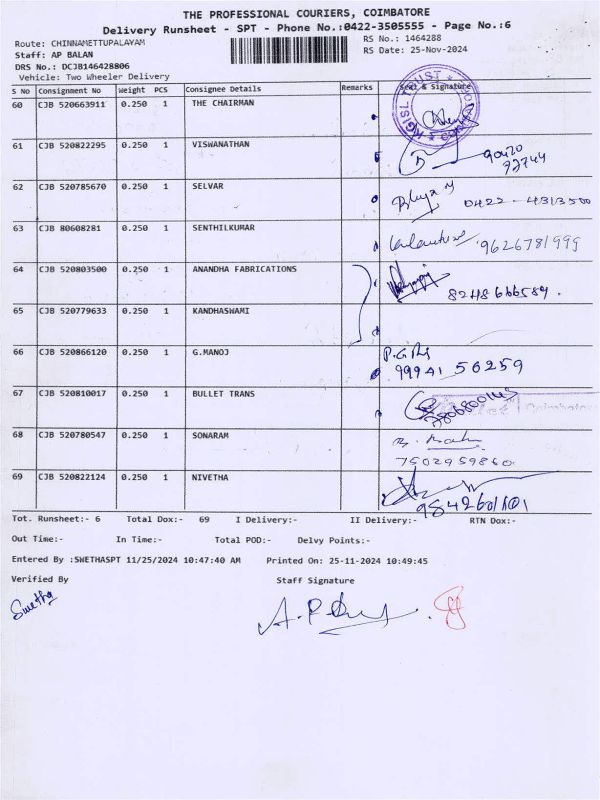 THE PROFESSIONAL COURIERS, COIMBATORE
Delivery Runsheet - SPT - Phone No.:0422-3505555 - Page No.:6
Route: CHINNAMETTUPALAYAM
RS No.: 1464288
Staff: AP BALAN
RS Date: 25-Nov-2024
DRS No.: DCJB146428806
Vehicle: Two Wheeler Delivery
S No Consignment No Weight PCS Consignee Details Remarks Seal & Signature
60 CJB 520663911 0.250 1 THE CHAIRMAN
KGISL TRUST
61 CJB 520822295 0.250 1 VISWANATHAN
62 CJB 520785670 0.250 1 SELVAR 0422 - 4313500
63 CJB 80608281 0.250 1 SENTHILKUMAR 9626781999
64 CJB 520803500 0.250 1 ANANDHA FABRICATIONS
8248666589.
65 CJB 520779633 0.250 1 KANDHASWAMI
66 CJB 520866120 0.250 1 G.MANOJ
99941 56259
67 CJB 520810017 0.250 1 BULLET TRANS
Coimbatore
68 CJB 520780547 0.250 1 SONARAM
7502959860
69 CJB 520822124 0.250 1 NIVETHA
Tot. Runsheet:- 6 Total Dox:- 69 I Delivery:- II Delivery:- RTN Dox:-
Out Time:- In Time:- Total POD:- Delvy Points:-
Entered By :SWETHASPT 11/25/2024 10:47:40 AM Printed On: 25-11-2024 10:49:45
Verified By Staff Signature
Swetha